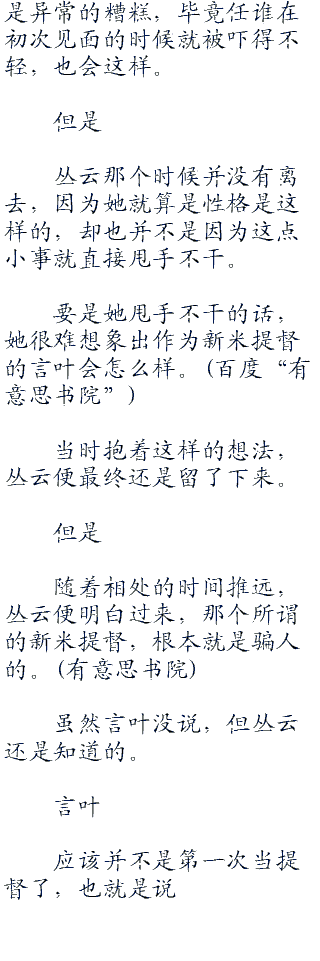 是异常的糟糕，毕竟任谁在
初次见面的时候就被吓得不
轻，也会这样。
但是
丛云那个时候并没有离
去，因为她就算是性格是这
样的，却也并不是因为这点
小事就直接甩手不干。
要是她甩手不干的话，
她很难想象出作为新米提督
的言叶会怎么样。(百度“有
意思书院”)
当时抱着这样的想法，
丛云便最终还是留了下来。
但是
随着相处的时间推远，
丛云便明白过来，那个所谓
的新米提督，根本就是骗人
的。(有意思书院)
虽然言叶没说，但丛云
还是知道的。
言叶
应该并不是第一次当提
督了，也就是说